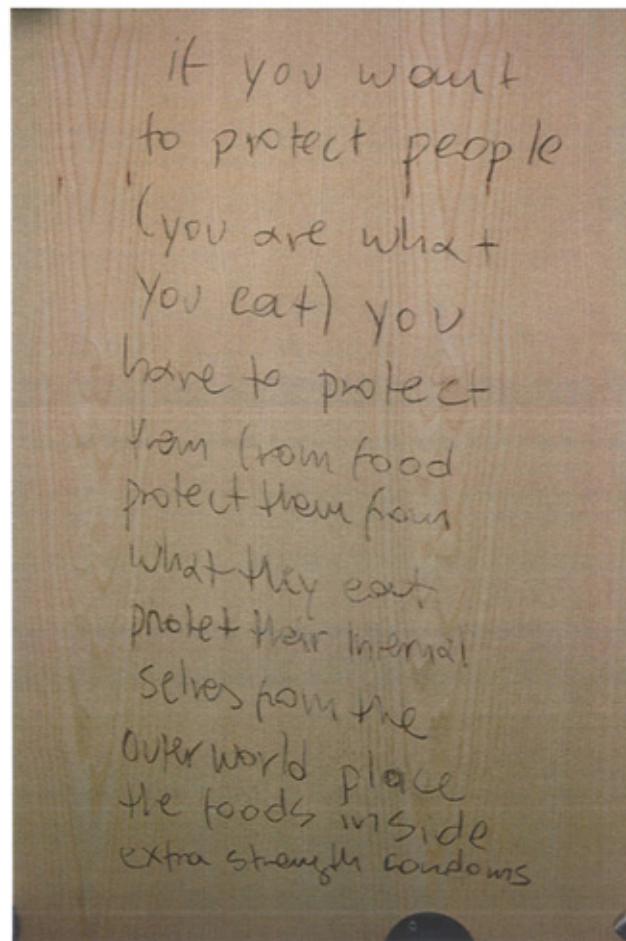 if you want
to protect people
(you are what
you eat) you
have to protect
from food
protect them from
what they eat
protet their internal
selves from the
outer world place
the foods inside
extra strength condoms